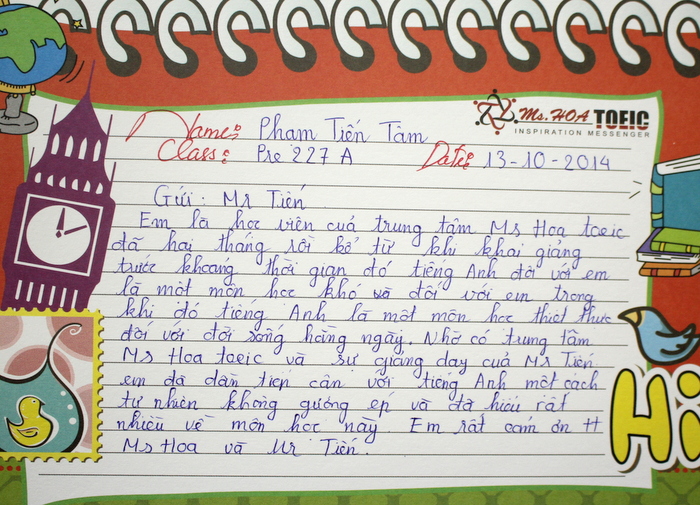 Ms. HOA TOEIC
INSPIRATION MESSENGER
Name: Phạm Tiến Tâm
Class: Pre 227 A
Date: 13-10-2014
Gửi: Mr Tiến
Em là học viên cuả trung tâm Ms Hoa toeic
đã hai tháng rồi kể từ khi khai giảng
trước khoảng thời gian đó tiếng Anh đối với em
là một môn học khó và đối với em trong
khi đó tiếng Anh là một môn học thiết thực
đối với đời sống hàng ngày. Nhờ có trung tâm
Ms Hoa toeic và sự giảng dạy cuả Mr Tiến
em đã dần tiếp cận với tiếng Anh một cách
tự nhiên không gượng ép và đã hiểu rất
nhiều về môn học này. Em rất cảm ơn tt
Ms Hoa và Mr Tiến.
Hi